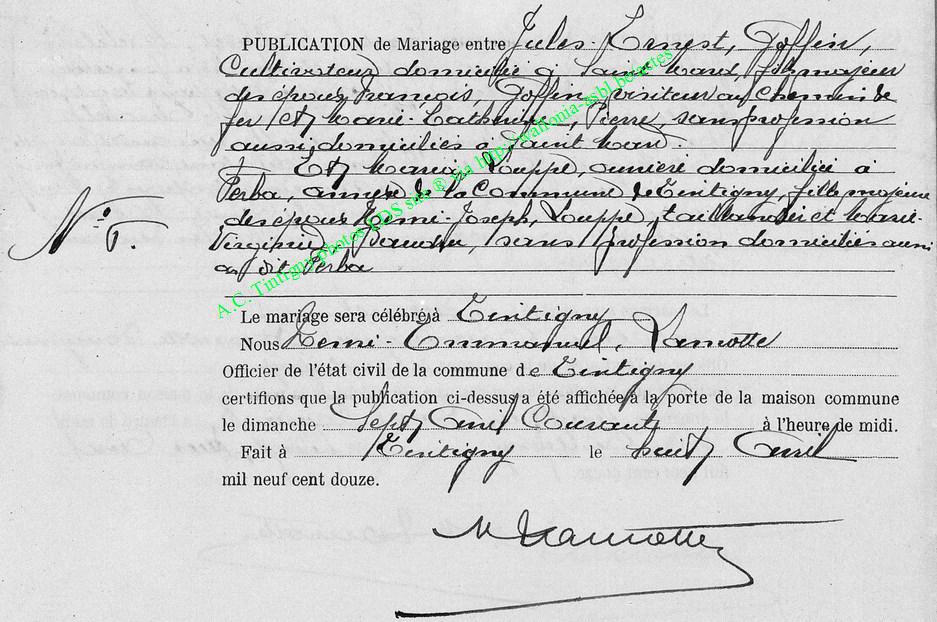 PUBLICATION de Mariage entre Jules Ernest, Goffin,
Cultivateur domicilié à Saint Mard, fils majeur
des époux François, Goffin, visiteur au Chemin de
fer, Et Marie-Catherine, Pierre, sans profession
aussi domiciliés à Saint Mard.
Et Maria Louppe, ouvrière domiciliée à
Ferba, annexe de la Commune de Tintigny, fille majeure
des époux Henri-Joseph, Louppe, taillandier et Marie-
Virginie, sans profession domiciliés aussi
au dit Ferba
N°
Le mariage sera célébré à Tintigny
Nous Henri-Emmanuel, Lamotte
Officier de l'état civil de la commune de Tintigny
certifions que la publication ci-dessus a été affichée à la porte de la maison commune
le dimanche Sept Avril Courant à l'heure de midi.
Fait à Tintigny le huit Avril
mil neuf cent douze.
Lamotte
A.C. Tintigny photos GDS site ® via http://wallonia-asbl.be/actes